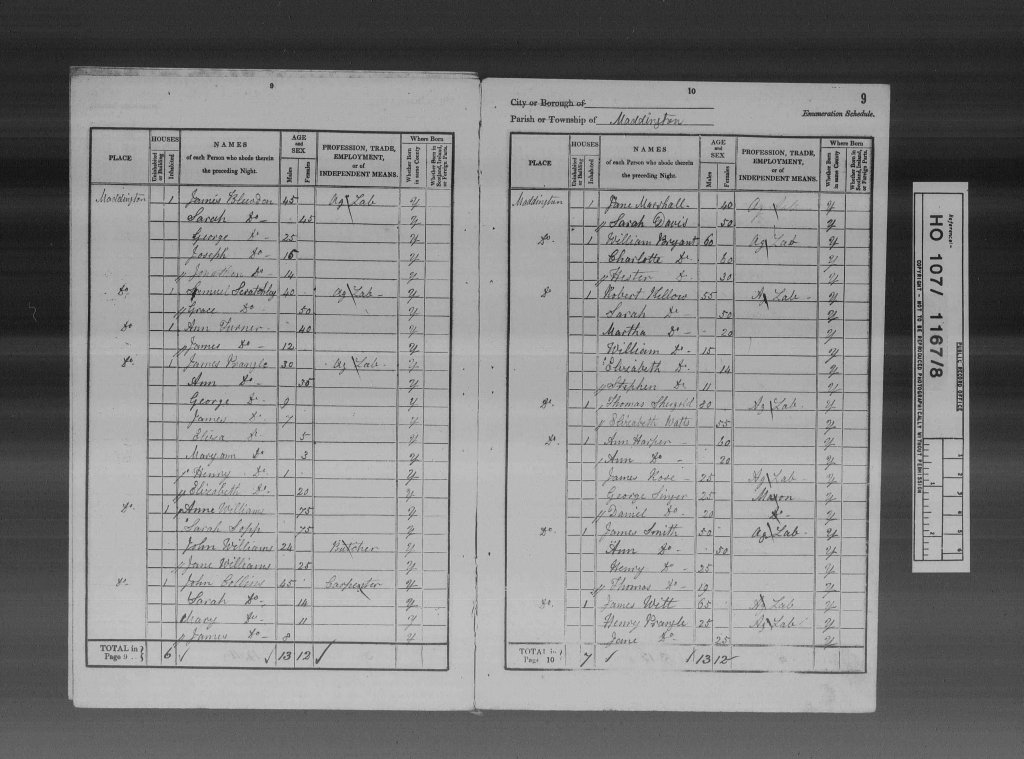 9
HOUSES
AGE and SEX
Where Born
PLACE
Uninhabited or Building
Inhabited
NAMES of each Person who abode therein the preceding Night.
Males
Females
PROFESSION, TRADE, EMPLOYMENT, or of INDEPENDENT MEANS.
Whether Born in same County
Whether Born in Scotland, Ireland, or Foreign Parts.
Maddington 1 James 45 Ag Lab y
Sarah Do 45 y
George Do 25 y
Joseph Do 15 y
Jonathan Do 14 y
Do 1 Samuel 40 Ag Lab y
Grace Do 50 y
Do 1 Ann Turner 40 y
James Do 12 y
Do 1 James Prangle 30 Ag Lab y
Ann Do 35 y
George Do 9 y
James Do 7 y
Eliza Do 5 y
Mary ann Do 3 y
Henry Do 1 y
Elizabeth Do 20 y
Do 1 Anne Williams 75 y
Sarah Sopp 75 y
John Williams 24 Butcher y
Jane Williams 25 y
Do 1 John Collins 45 Carpenter y
Sarah Do 14 y
Mary Do 11 y
James Do 8 y
TOTAL in Page 9 6 13 12
10
9
City or Borough of
Enumeration Schedule.
Parish or Township of Maddington
HOUSES
AGE and SEX
Where Born
PLACE
Uninhabited or Building
Inhabited
NAMES of each Person who abode therein the preceding Night.
Males
Females
PROFESSION, TRADE, EMPLOYMENT, or of INDEPENDENT MEANS.
Whether Born in same County
Whether Born in Scotland, Ireland, or Foreign Parts.
Maddington 1 Jane Marshall 40 Ag Lab y
Sarah Davis 50 y
Do 1 William Bryant 60 Ag Lab y
Charlotte Do 60 y
Hester Do 30 y
Do 1 Robert 55 Ag Lab y
Sarah Do 50 y
Martha Do 20 y
William Do 15 y
Elizabeth Do 14 y
Stephen Do 11 y
Do 1 Thomas 80 Ag Lab y
Elizabeth Watts 55 y
Do 1 Ann Harper 60 y
Ann Do 20 y
James Rose 25 Ag Lab y
George Singer 25 Mason y
Daniel Do 20 Do y
Do 1 James Smith 50 Ag Lab y
Ann Do 50 y
Henry Do 25 y
Thomas Do 12 y
Do 1 James Witt 65 Ag Lab y
Henry Prangle 25 Ag Lab y
Jane Do 25 y
TOTAL in Page 10 7 13 12
Reference:-
HO 107/1167/8
PUBLIC RECORD OFFICE
COPYRIGHT - NOT TO BE REPRODUCED PHOTOGRAPHICALLY WITHOUT PERMISSION